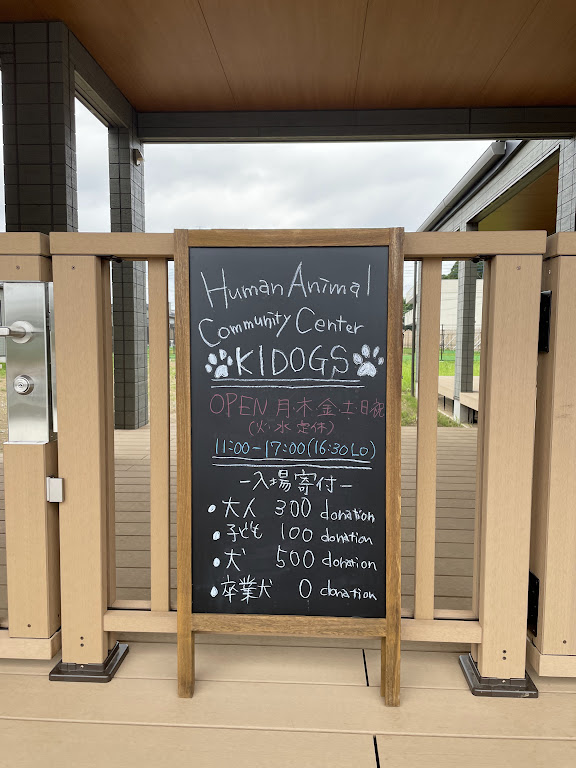 Human Animal
Community Center
KIDOGS
OPEN 月・木・金・土・日・祝
(火・水定休)
11:00-17:00(16:30LO)
-入場寄付-
• 大人 300 donation
• 子ども 100 donation
• 犬 500 donation
• 卒業犬 0 donation